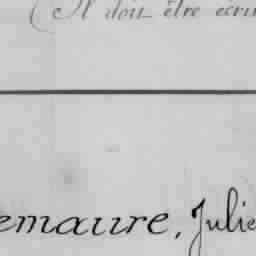 (Il doit être écri
emaure, Julie